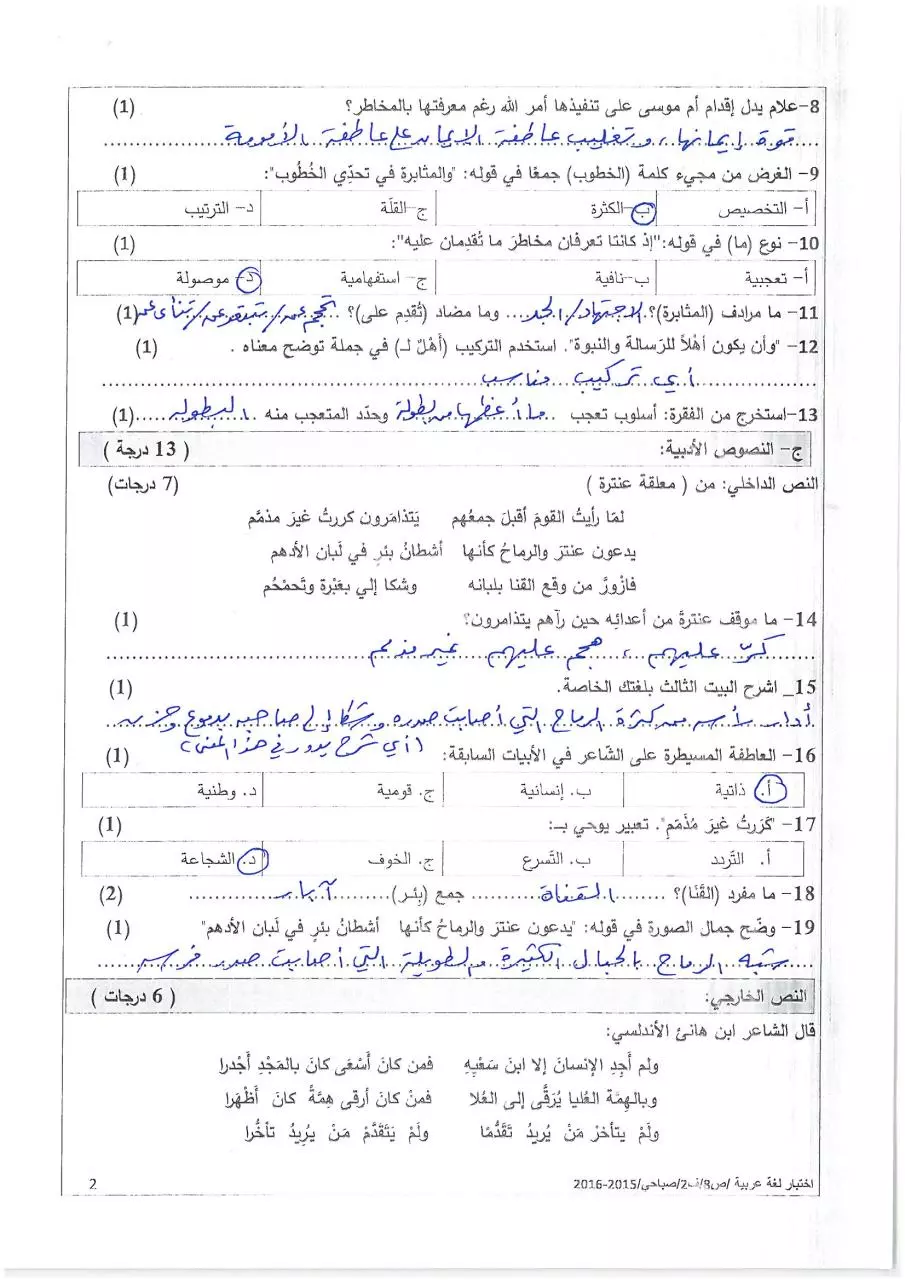 8-علام يدل إقدام أم موسى على تنفيذها أمر الله رغم معرفتها بالمخاطر؟ (1)
قوة إيمانها، وتغليب عاطفة الإيمان على عاطفة الأمومة
9- الغرض من مجيء كلمة (الخطوب) جمعًا في قوله: "والمثابرة في تحدّي الخُطُوب": (1)
أ- التخصيص ب-الكثرة ج-القلّة د- الترتيب
10- نوع (ما) في قوله:"إذ كانتا تعرفان مخاطرَ ما تُقدِمان عليه": (1)
أ- تعجبية ب-نافية ج- استفهامية د- موصولة
11- ما مرادف (المثابرة)؟ الاجتهاد/الجد وما مضاد (تُقدِم على)؟ تحجم عن/تبتعد عن/تنأى عن (1)
12- "وأن يكون أهْلاً للرّسالة والنبوة". استخدم التركيب (أَهْلٌ لـ) في جملة توضح معناه . (1)
أي تركيب مناسب
13-استخرج من الفقرة: أسلوب تعجب ما أعظمها من بطولة وحدّد المتعجب منه البطولة (1)
ج- النصوص الأدبية: ( 13 درجة )
النص الداخلي: من ( معلقة عنترة ) (7 درجات)
لمّا رأيتُ القومَ أقبلَ جمعُهم يَتذامَرون كررتُ غيرَ مذمّم
يدعون عنترَ والرماحُ كأنها أشطانُ بئرٍ في لَبان الأدهم
فازْورَّ من وقع القنا بلبانه وشكا إلي بعَبْرة وتَحمْحُم
14- ما موقف عنترةَ من أعدائِه حين رآهم يتذامرون؟ (1)
كرّ عليهم ، هجم عليهم غير مذمم
15_ اشرح البيت الثالث بلغتك الخاصة. (1)
أدار رأسه من كثرة الرماح التي أصابت صدره وشكا إلى صاحبه بدموع وحزن
(أي شرح يدور في هذا المعنى)
16- العاطفة المسيطرة على الشّاعر في الأبيات السابقة: (1)
أ. ذاتية ب. إنسانية ج. قومية د. وطنية
17- "كَرَرتُ غيرَ مُذمّمِ". تعبير يوحي بـ: (1)
أ. التّردد ب. التّسرع ج. الخوف د. الشجاعة
18- ما مفرد (القَنَا)؟ القناة جمع (بِئر) آبار (2)
19- وضّح جمال الصورة في قوله: "يدعون عنترَ والرماحُ كأنها أشطانُ بئرٍ في لَبان الأدهم" (1)
شبه الرماح بالحبال الكثيرة والطويلة التي أصابت صدر فرسه
النص الخارجي: ( 6 درجات )
قال الشاعر ابن هانئ الأندلسي:
ولم أجِدِ الإنسانَ إلا ابنَ سَعْيِهِ فمن كانَ أَسْعَى كانَ بالمَجْدِ أَجْدرا
وبالهِمّة العُليا يُرَقَّى إلى العُلا فمنْ كانَ أرقى هِمَّةً كانَ أَظْهَرا
ولَمْ يتأخرْ مَنْ يُرِيدُ تَقَدُّمًا ولَمْ يَتَقَدَّمْ مَنْ يُرِيدُ تأخُّرا
اختبار لغة عربية /ص8/ف2/صباحي/2015-2016 2